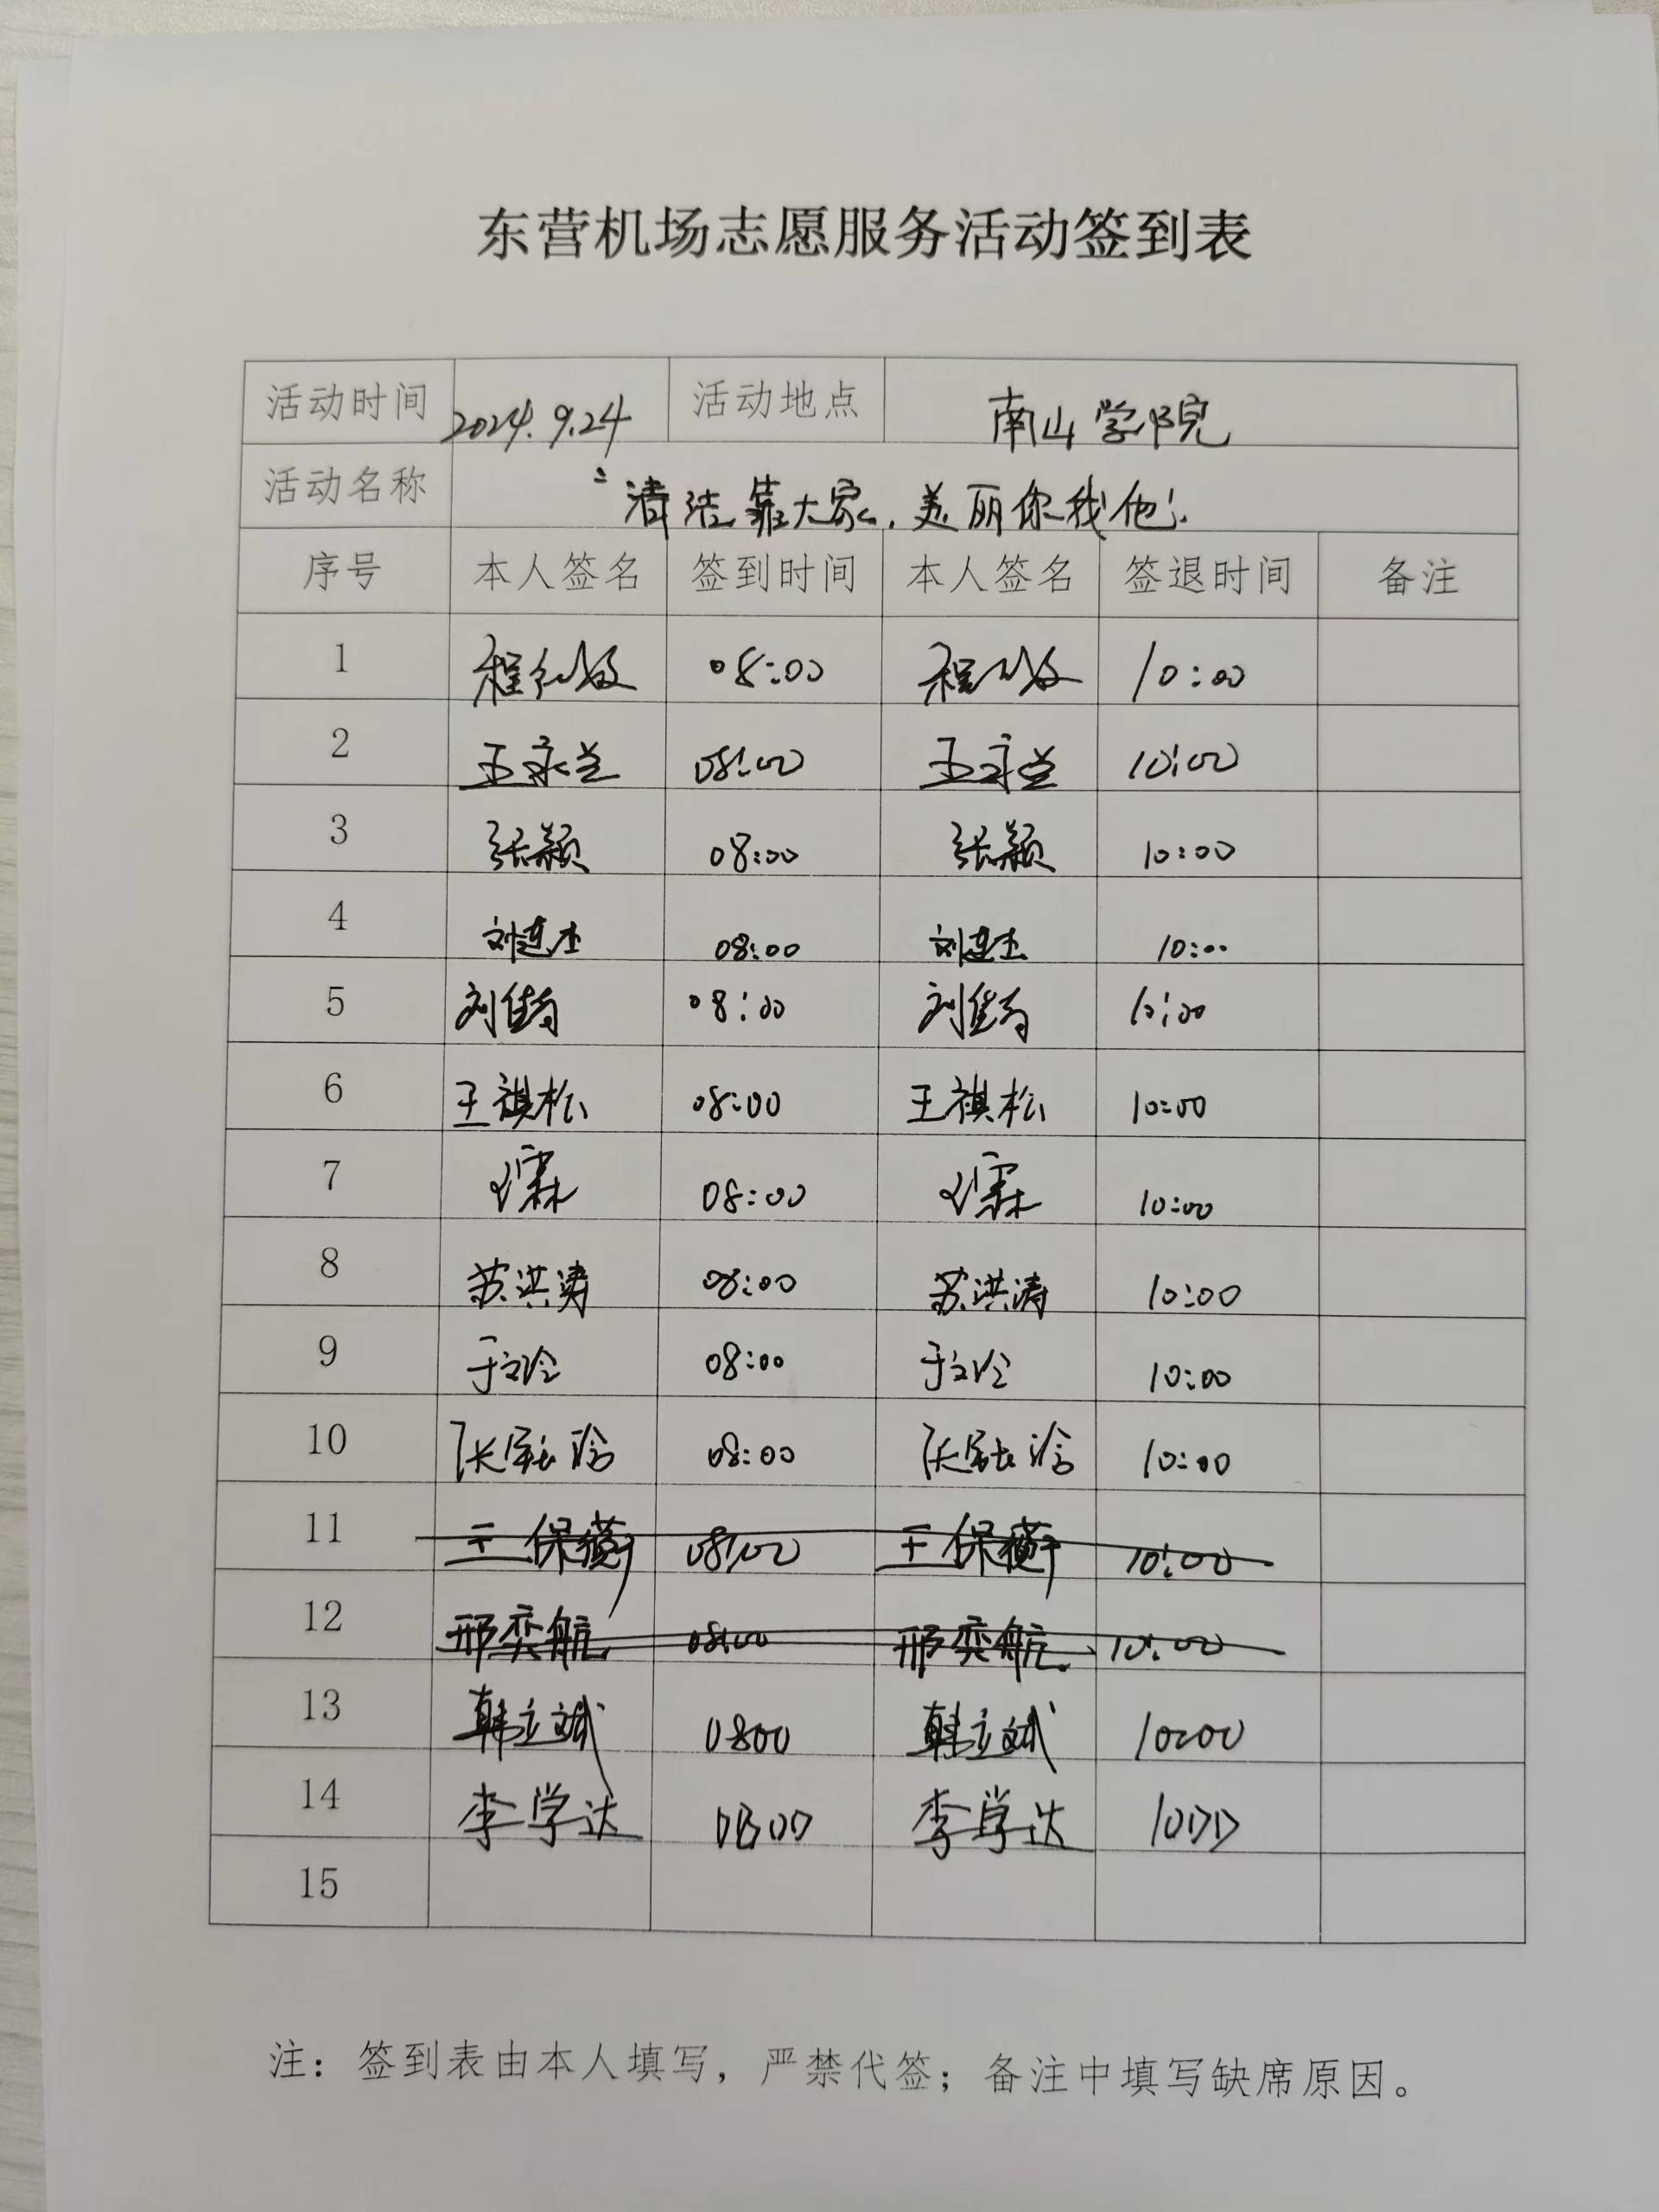 东营机场志愿服务活动签到表
活动时间 2024.9.24 活动地点 南山学院
活动名称 “清洁靠大家,美丽你我他”
序号 本人签名 签到时间 本人签名 签退时间 备注
1 08:00 10:00
2 08:00 10:00
3 张颖 08:00 张颖 10:00
4 刘连杰 08:00 刘连杰 10:00
5 08:00 10:00
6 王祺松 08:00 王祺松 10:00
7 08:00 10:00
8 苏洪涛 08:00 苏洪涛 10:00
9 08:00 10:00
10 08:00 10:00
11 08:00 10:00
12 邢奕航 08:00 邢奕航 10:00
13 韩立斌 0800 韩立斌 10:00
14 李学达 0800 李学达 1000
15
注：签到表由本人填写，严禁代签；备注中填写缺席原因。